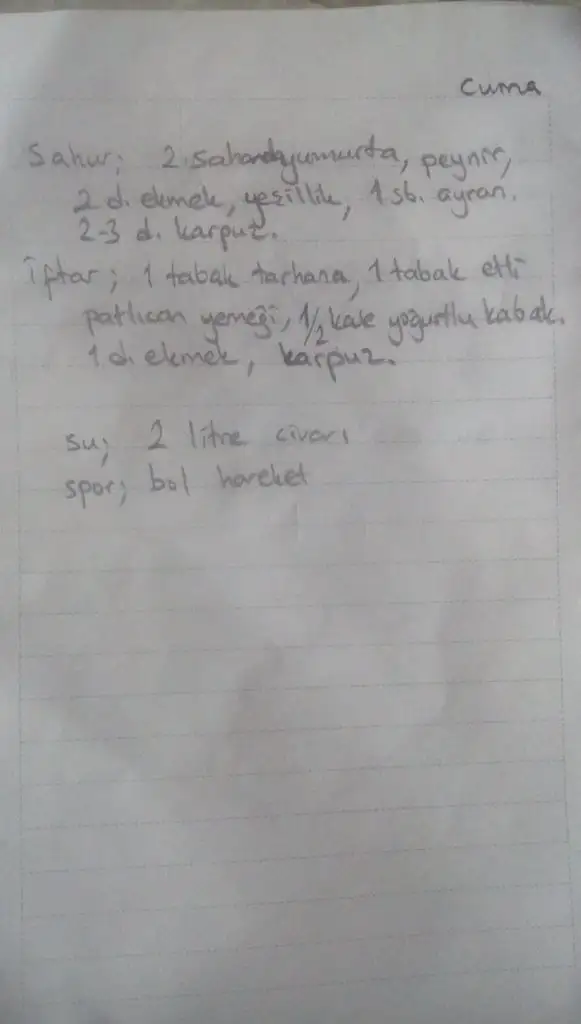 Cuma
Sahur; 2 sahandayumurta, peynir,
2 d. ekmek, yeşillik, 1 sb. ayran.
2-3 d. karpuz.
İftar; 1 tabak tarhana, 1 tabak etli
patlıcan yemeği, 1/2 kase yoğurtlu kabak.
1 d. ekmek, karpuz.
su; 2 litre civarı
spor; bol hareket